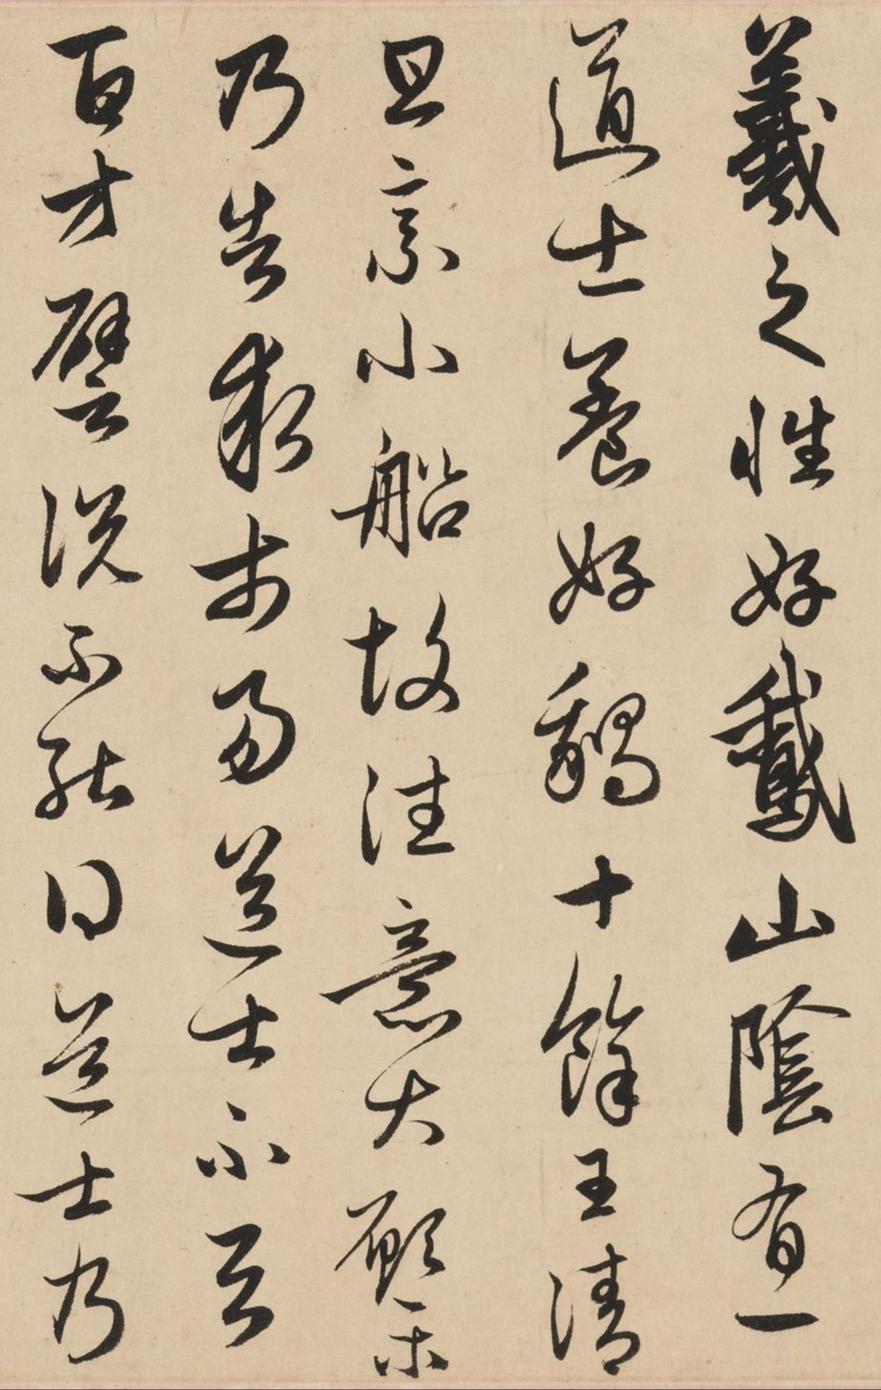 羲之性好鵞山陰有一
道士養好鵝十餘王清
旦乘小船故往意大願樂
乃告求市易道士不與
百方譬說不能得道士乃